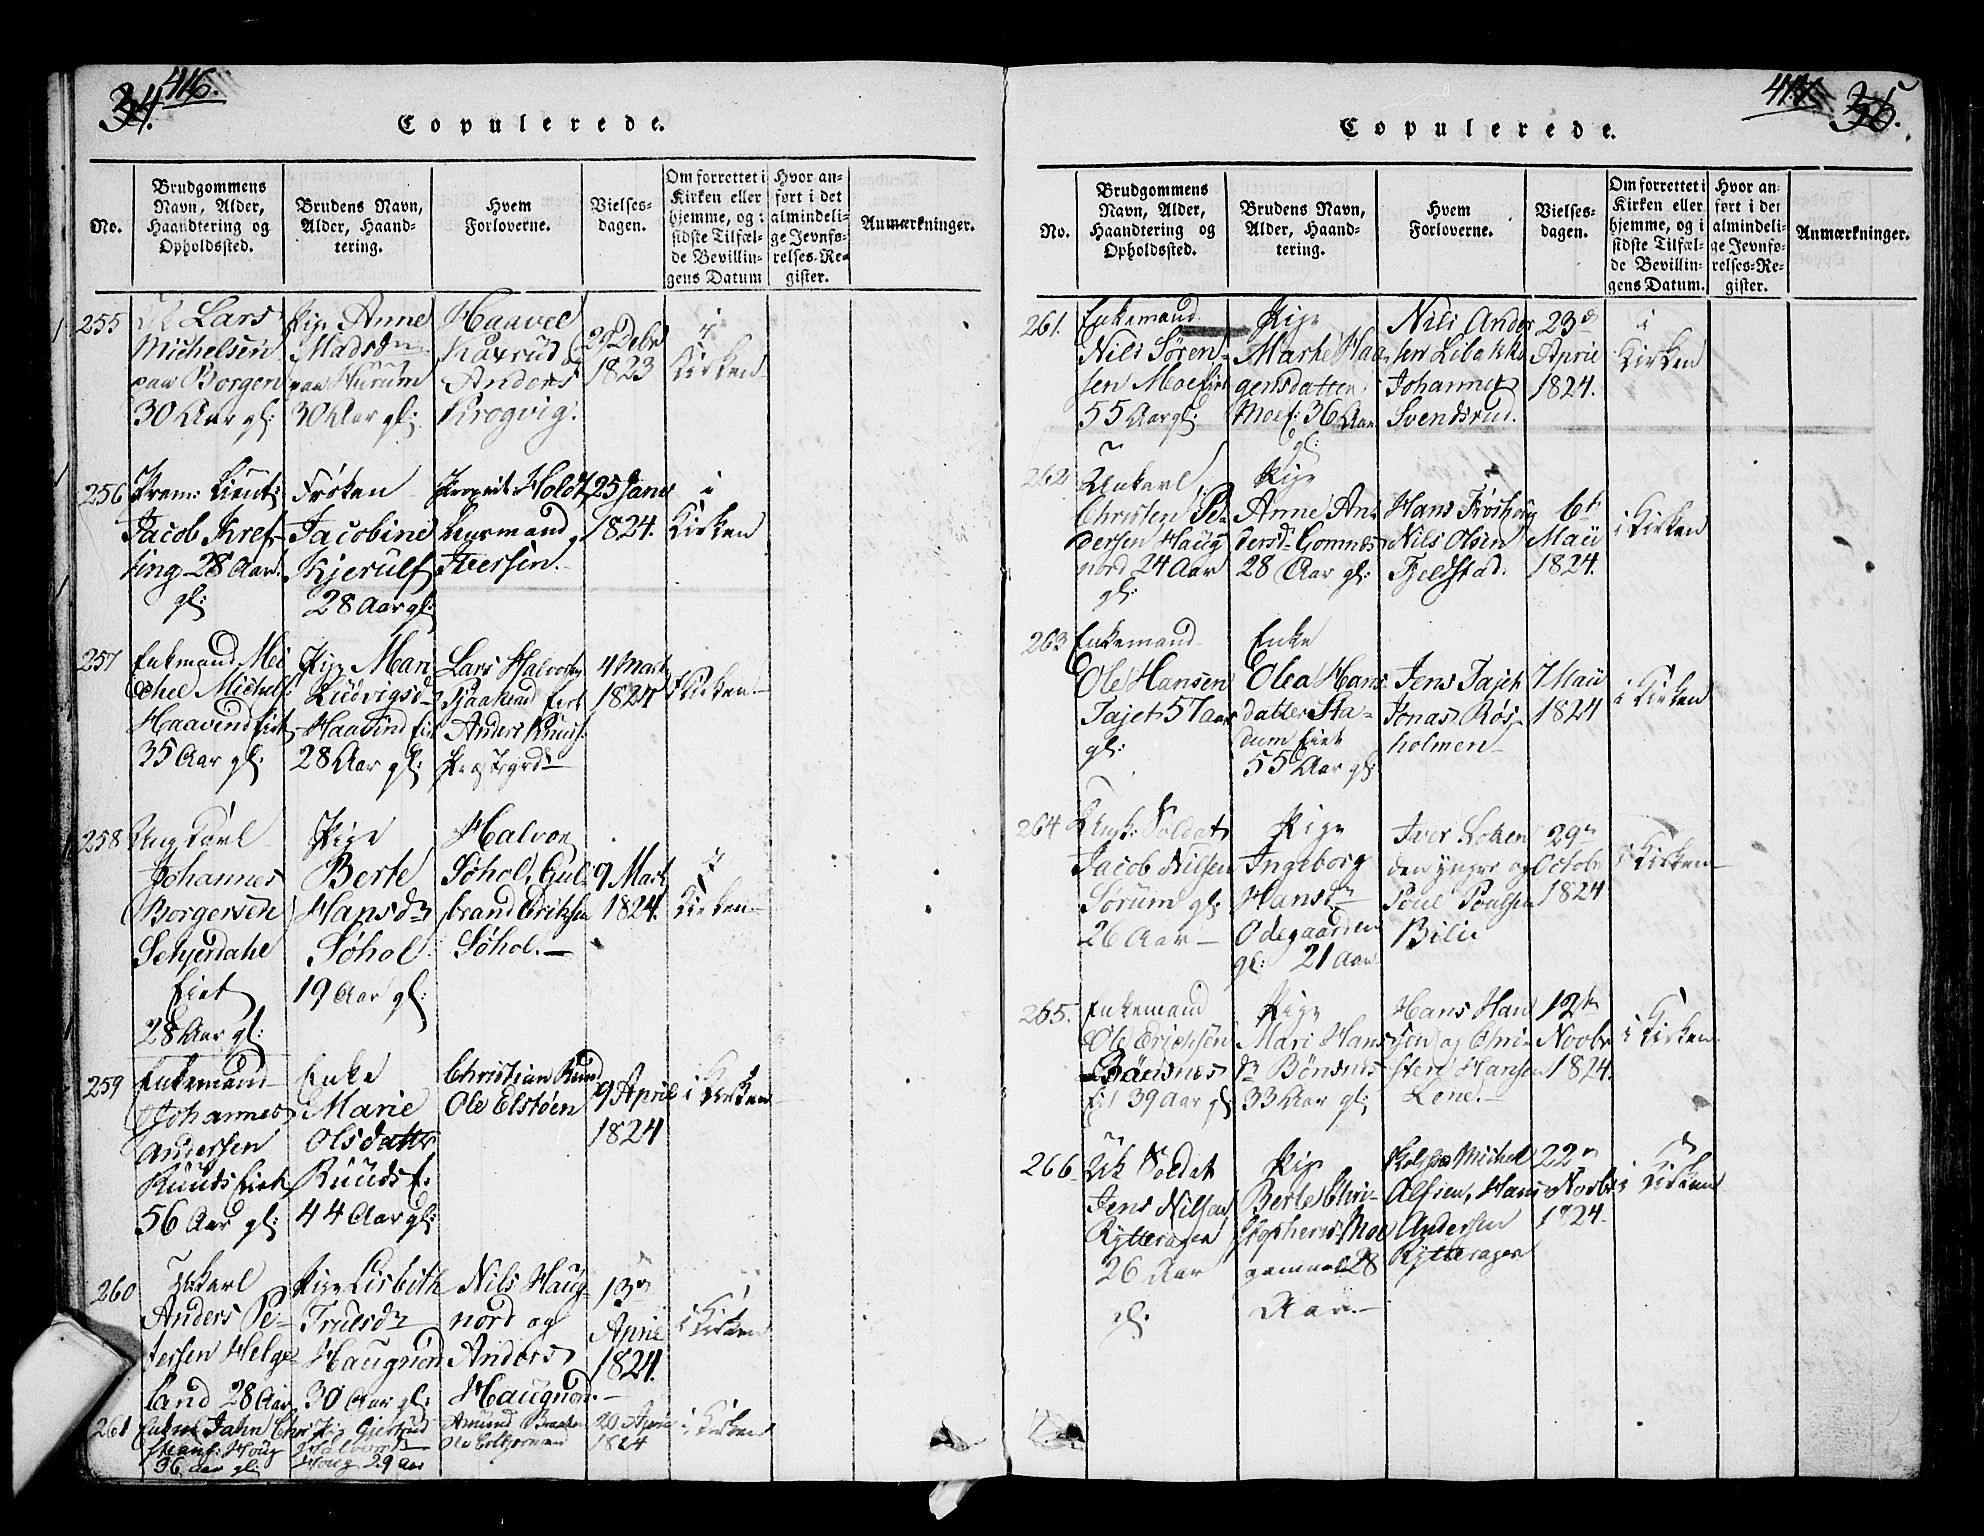 34.
416.
Copulerede.
No.
Brudgommens Navn, Alder, Haandtering og Opholdssted.
Brudens Navn, Alder, Haandtering.
Hvem Forloverne.
Vielsesdagen.
Om forrettet i Kirken eller hjemme, og i sidste Tilfælde Bevillingens Datum
Hvor anført i det almindelige Jevnførelses-Register.
Anmærkninger.
255
Lars
Michelsen
paa Borgen
30 Aar gl:
Pige Anne
Madsd
paa Hurum
30 Aar gl:
Haavel
Kaxrud
Anders
Krogvig.
29 Debr
1823
i
Kirken
256
Prem: Lieut:
Jacob Kref-
ting 28 Aar
gl:
Frøken
Jacobine
Kjerulf
28 Aar gl:
Holdt
Iversen
25 Janr
1824.
i
Kirken
257
Enkmand Mi
chel Michels
Haavind Eiet
35 Aar gl:
Pige Mari
Ludvigsd
Haavind Eiet
28 Aar gl:
Lars Halvorsen
Anders Knuds
Præstgrd
4 Mart
1824
i Kirken
258
Ung Karl
Johannes
Borgersen
Schjerdahl
Eiet
28 Aar gl:
Pige
Berte
Hansdr
Søhol
19 Aar gl:
Halvor
Søhol, Gul
brand Eriksen
Søhol.
9 Mart
1824.
i
Kirken
259
Enkemand
Johannes
Andersen
Ruuds Eiet
56 Aar gl:
Enke
Marie
Olsdatter
Ruuds E.
44 Aar gl:
Christian Ruud
Ole Elstøen
9 April
1824
i Kirken
260
Ukarl
Anders Pe-
tersen Helge
land 28 Aar
Pige Lisbith
Truelsdr
Haugnord
30 Aar gl:
Nils Haug-
nord og
Anders
Haugnord.
13de
April
1824.
i Kirken
261
Enkem Jahn Chr
Houg
36 Aar gl:
Pige Giertrud
Halvorsd
Houg 29 Aar
Amund Braaten
Ole
20 April
1824
i Kirken
417.
35.
Copulerede.
No.
Brudgommens Navn, Alder, Haandtering og Opholdssted.
Brudens Navn, Alder, Haandtering.
Hvem Forloverne.
Vielsesdagen.
Om forrettet i Kirken eller hjemme, og i sidste Tilfælde Bevillingens Datum.
Hvor anført i det almindelige Jevnførelses-Register.
Anmærkninger.
261.
Enkemand
Nils Søren-
sen Moe Eiet
55 Aar gl:
Pige
Marthe Haa
gensdatter
Moe: 36 Aar
gl:
Nils Ander
sen Libakke
Johannes
Svendsrud.
23de
April
1824.
i
Kirken
262
Unkarl
Christen Pe-
dersen Haug
nord 24 Aar
gl:
Pige
Anne An-
dersd Gomnes
28 Aar gl:
Hans Frøshoug
Nils Olsen
Fjeldstad.
6te
Maii
1824.
i Kirken
263
Enkemand
Ole Hansen
Tajet 57 Aar
gl:
Enke
Olea Hans
datter Sta-
dum Eiet
55 Aar gl:
Jens Tajet
Jonas Røs-
holmen
7 Maii
1824
i Kirken
264
Soldat
Jacob Nilsen
Sørum gl:
26 Aar
Pige
Ingeborg
Hansd
Odegaarden
gl: 21 Aar
Iver Loken
den yngre og
Poul Poulsen
Bili
29de
Octobr
1824
i Kirken
265.
Enkemand
Ole Erichsen
Bønsnes
Eiet 39 Aar gl:
Pige
Mari Hans
dr Bønsnes
33 Aar gl:
Hans Han
sen og Chri-
sten Hansen
Lene.
12te
Novbr
1824.
i Kirken
266
Uk Soldat
Jens Nilsen
Rytteragen
26 Aar
gl.
Pige
Berte Chri-
stophersd Moe
gammel 28
Aar.
Michel
Alfsen, Hans
Andersen
Rytteragen
22de
Novbr
1824.
i Kirken